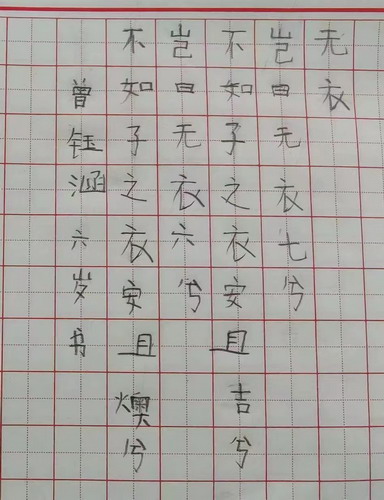 无衣
岂曰无衣七兮
不如子之衣安且吉兮
岂曰无衣六兮
不如子之衣安且燠兮
曾钰涵六岁书